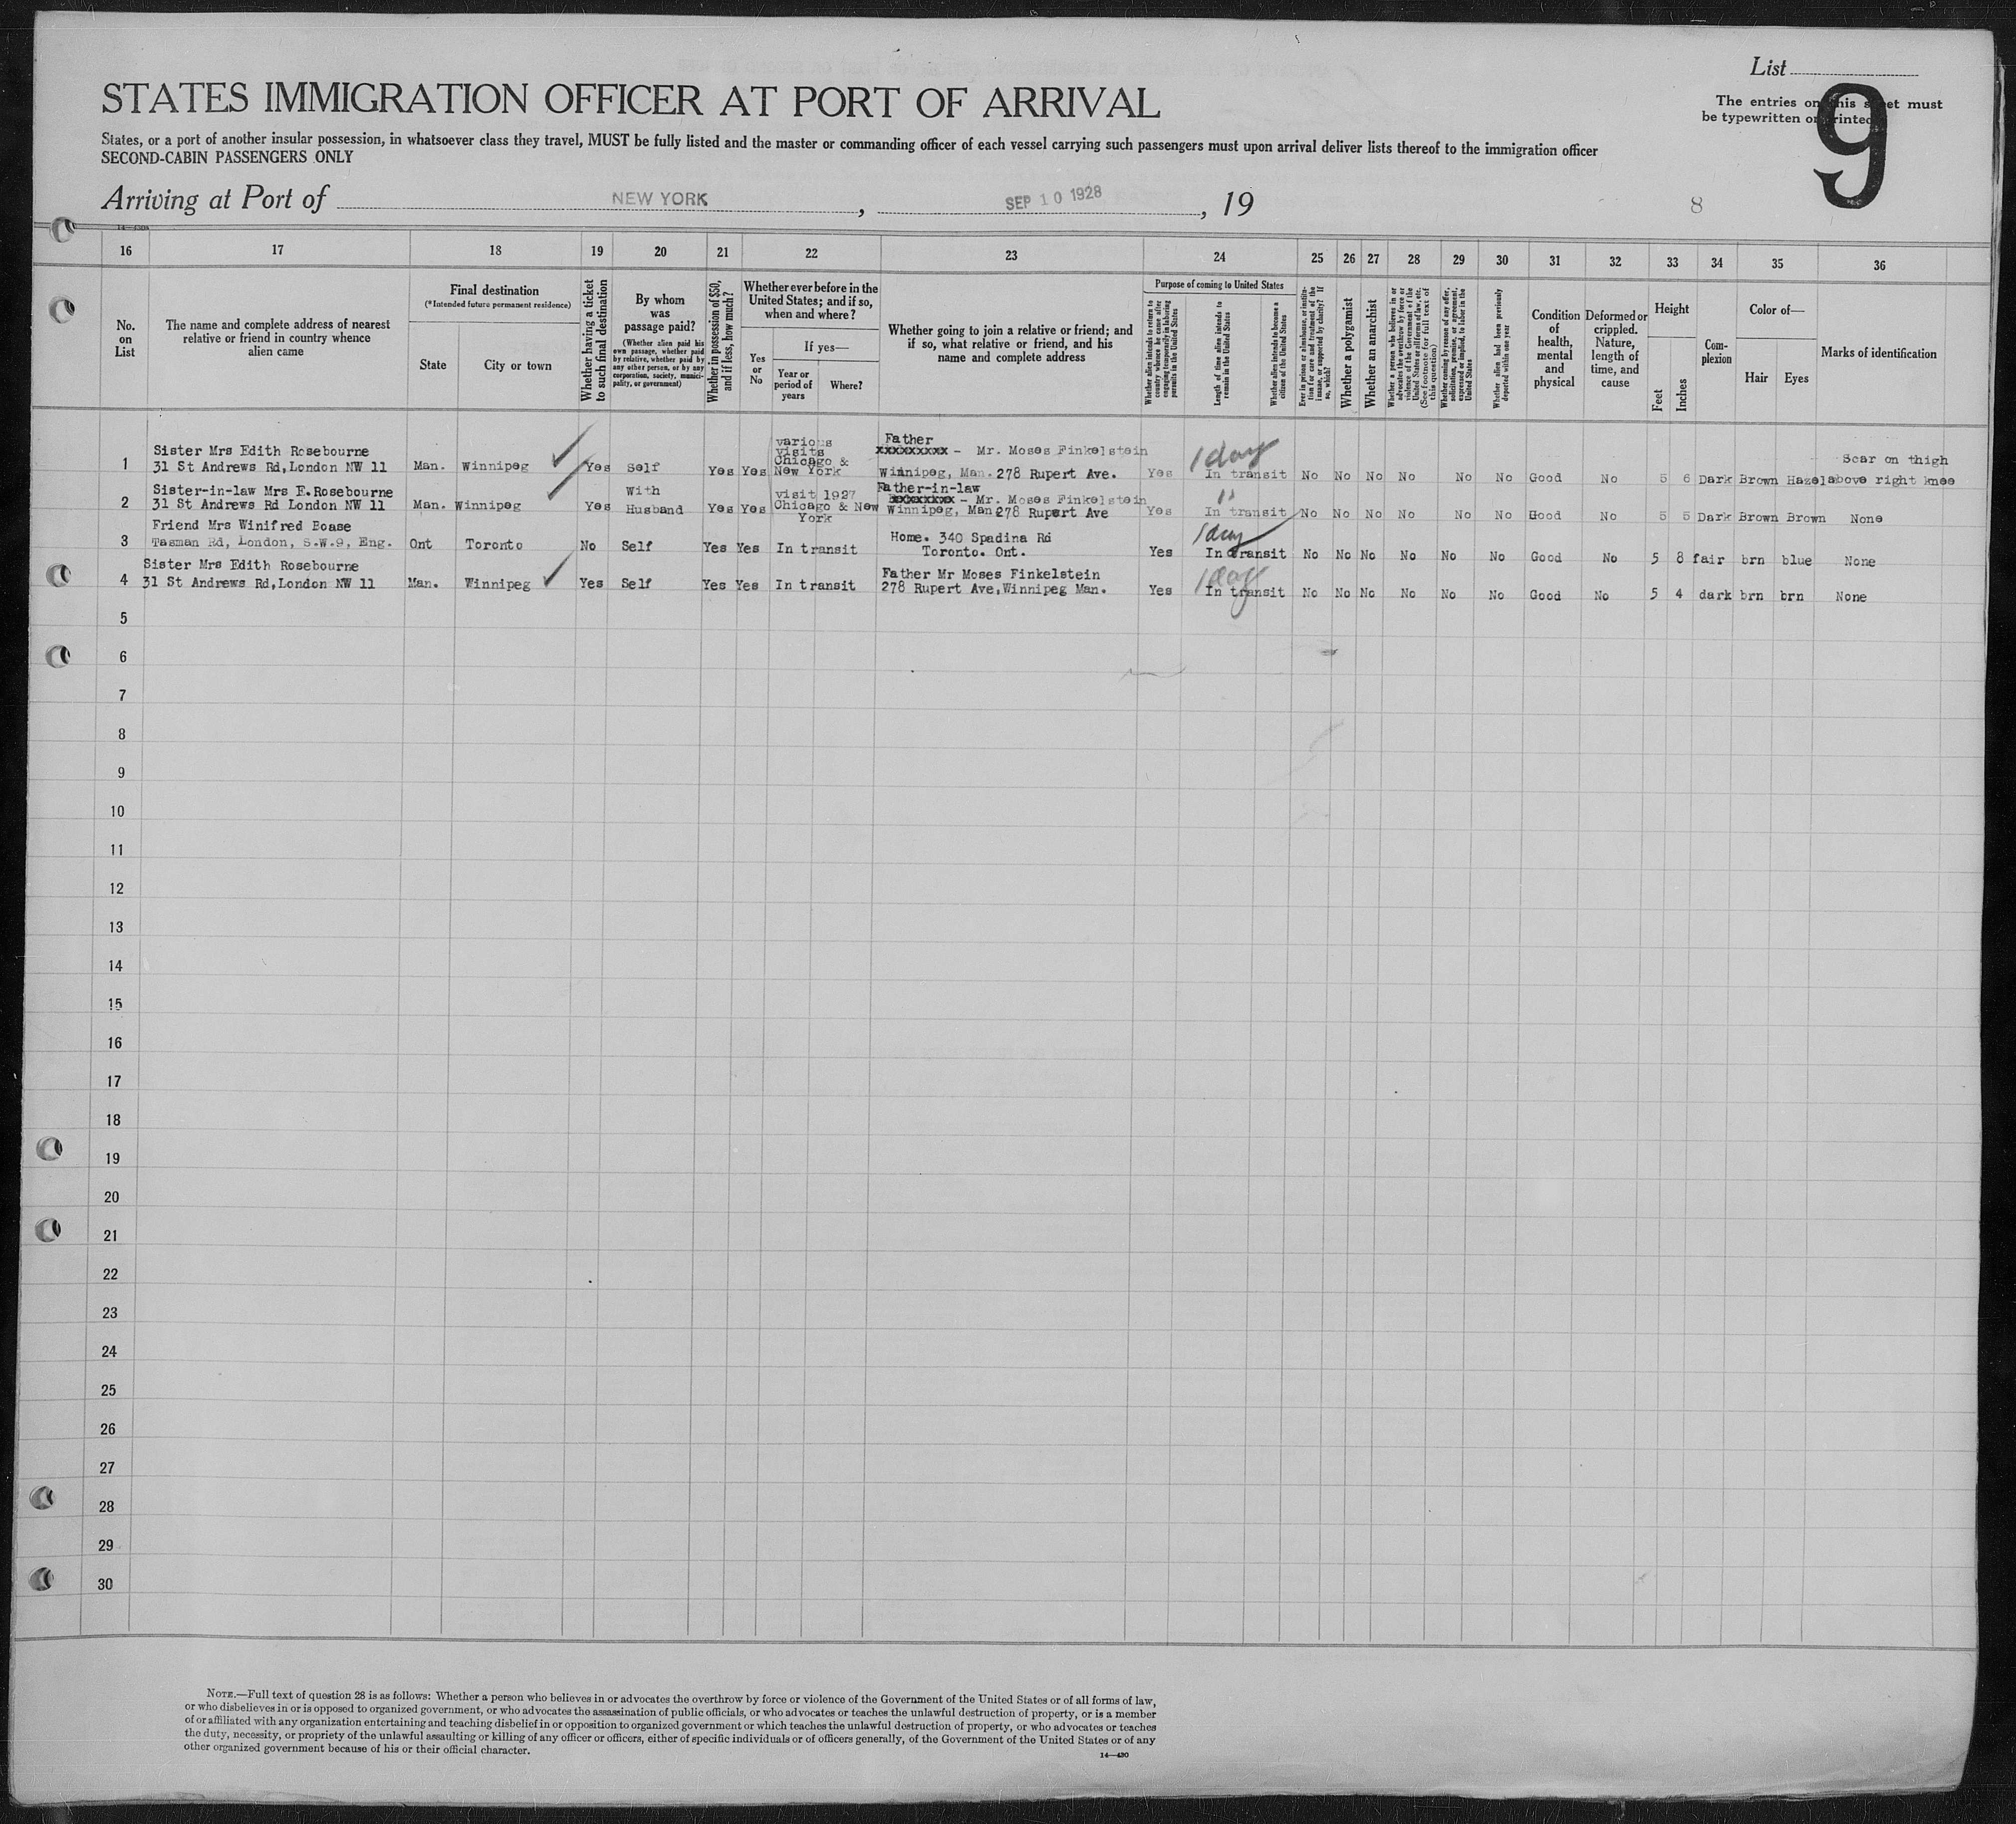 List
The entries on this sheet must
be typewritten or printed
9
STATES IMMIGRATION OFFICER AT PORT OF ARRIVAL
States, or a port of another insular possession, in whatsoever class they travel, MUST be fully listed and the master or commanding officer of each vessel carrying such passengers must upon arrival deliver lists thereof to the immigration officer
SECOND-CABIN PASSENGERS ONLY
Arriving at Port of NEW YORK, SEP 10 1928, 19
8
16 17 18 19 20 21 22 23 24 25 26 27 28 29 30 31 32 33 34 35 36
No. on List
The name and complete address of nearest
relative or friend in country whence
alien came
Final destination
(*Intended future permanent residence)
State
City or town
Whether having a ticket
to such final destination
By whom
was
passage paid?
(Whether alien paid his
own passage, whether paid
by relative, whether paid by
any other person, or by any
corporation, society, munici-
pality, or government)
Whether in possession of $50,
and if less, how much?
Whether ever before in the
United States; and if so,
when and where?
Yes
or
No
If yes—
Year or
period of
years
Where?
Whether going to join a relative or friend; and
if so, what relative or friend, and his
name and complete address
Purpose of coming to United States
Whether alien intends to return to
country whence he came after
engaging temporarily in laboring
pursuits in the United States
Length of time alien intends to
remain in the United States
Whether alien intends to become a
citizen of the United States
Ever in prison or almshouse, or institu-
tion for care and treatment of the
insane, or supported by charity? If
so, which?
Whether a polygamist
Whether an anarchist
Whether a person who believes in or
advocates the overthrow by force or
violence of the Government of the
United States or all forms of law, etc.
(See footnote for full text of
this question)
Whether coming by reason of any offer,
solicitation, promise, or agreement,
expressed or implied, to labor in the
United States
Whether alien had been previously
deported within one year
Condition
of
health,
mental
and
physical
Deformed or
crippled.
Nature,
length of
time, and
cause
Height
Feet
Inches
Com-
plexion
Color of—
Hair
Eyes
Marks of identification
1 Sister Mrs Edith Rosebourne
31 St Andrews Rd,London NW 11 Man. Winnipeg Yes Self Yes Yes
various
visits
Chicago &
New York
Father
xxxxxxxxx - Mr. Moses Finkelstein
Winnipeg, Man. 278 Rupert Ave. Yes
1 day
In transit No No No No No No Good No 5 6 Dark Brown Hazel
Scar on thigh
above right knee
2 Sister-in-law Mrs E.Rosebourne
31 St Andrews Rd London NW 11 Man. Winnipeg Yes
With
Husband Yes Yes
visit 1927
Chicago & New
York
Father-in-law
xxxxxxxx - Mr. Moses Finkelstein
Winnipeg, Man 278 Rupert Ave Yes
"
In transit No No No No No No Good No 5 5 Dark Brown Brown None
3 Friend Mrs Winifred Boase
Tasman Rd, London, S.W.9, Eng. Ont Toronto No Self Yes Yes In transit
Home. 340 Spadina Rd
Toronto. Ont. Yes
1 day
In transit No No No No No No Good No 5 8 fair brn blue None
4 Sister Mrs Edith Rosebourne
31 St Andrews Rd,London NW 11 Man. Winnipeg Yes Self Yes Yes In transit
Father Mr Moses Finkelstein
278 Rupert Ave,Winnipeg Man. Yes
1 day
In transit No No No No No No Good No 5 4 dark brn brn None
5
6
7
8
9
10
11
12
13
14
15
16
17
18
19
20
21
22
23
24
25
26
27
28
29
30
NOTE.—Full text of question 28 is as follows: Whether a person who believes in or advocates the overthrow by force or violence of the Government of the United States or of all forms of law,
or who disbelieves in or is opposed to organized government, or who advocates the assassination of public officials, or who advocates or teaches the unlawful destruction of property, or is a member
of or affiliated with any organization entertaining and teaching disbelief in or opposition to organized government or which teaches the unlawful destruction of property, or who advocates or teaches
the duty, necessity, or propriety of the unlawful assaulting or killing of any officer or officers, either of specific individuals or of officers generally, of the Government of the United States or of any
other organized government because of his or their official character.
14—430